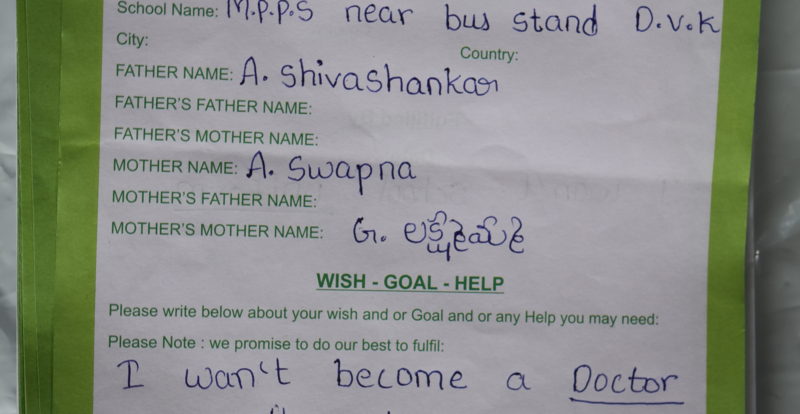 School Name: M.P.P.S near bus stand D.V.K
City:
Country:
FATHER NAME: A. Shivashankar
FATHER'S FATHER NAME:
FATHER'S MOTHER NAME:
MOTHER NAME: A. Swapna
MOTHER'S FATHER NAME:
MOTHER'S MOTHER NAME: G.
WISH - GOAL - HELP
Please write below about your wish and or Goal and or any Help you may need:
Please Note : we promise to do our best to fulfil:
I wan't become a Doctor